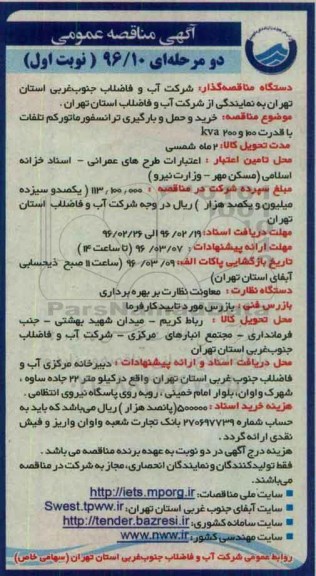 آگهی مناقصه عمومی
دو مرحله‌ای ۹۶/۱۰ ( نوبت اول)
دستگاه مناقصه‌گذار: شرکت آب و فاضلاب جنوب‌غربی استان
تهران به نمایندگی از شرکت آب و فاضلاب استان تهران .
موضوع مناقصه: خرید و حمل و بارگیری ترانسفورماتورکم تلفات
با قدرت ۱۰۰ و ۲۰۰ kva
مدت تحویل کالا: ۲ ماه شمسی
محل تامین اعتبار : اعتبارات طرح های عمرانی - اسناد خزانه
اسلامی (مسکن مهر - وزارت نیرو )
مبلغ سپرده شرکت در مناقصه : ۱۱۳,۱۰۰,۰۰۰ ( یکصدو سیزده
میلیون و یکصد هزار ) ریال در وجه شرکت آب و فاضلاب استان
تهران
مهلت دریافت اسناد: ۹۶/۰۲/۱۹ الی ۹۶/۰۲/۲۶
مهلت ارائه پیشنهادات : ۹۶/۰۳/۰۷ (تا ساعت ۱۴ )
تاریخ بازگشایی پاکات الف: ۹۶/۰۳/۰۹ (ساعت ۱۱ صبح ذیحسابی
آبفای استان تهران)
دستگاه نظارت : معاونت نظارت بر بهره برداری
بازرس فنی : بازرس مورد تایید کارفرما
محل تحویل کالا : رباط کریم - میدان شهید بهشتی - جنب
فرمانداری - مجتمع انبارهای مرکزی - شرکت آب و فاضلاب
جنوب‌غربی استان تهران
محل دریافت اسناد و ارائه پیشنهادات : دبیرخانه مرکزی آب و
فاضلاب جنوب غربی استان تهران واقع درکیلو متر ۲۲ جاده ساوه ،
شهرک واوان، بلوار امام خمینی ، روبه روی پاسگاه نیروی انتظامی .
هزینه خرید اسناد : ۵۰۰۰۰۰(پانصد هزار ) ریال می‌باشد که باید به
حساب شماره ۲۷۰۶۹۷۷۳۹ بانک تجارت شعبه واوان واریز و فیش
نقدی ارائه گردد .
هزینه درج آگهی در دو نوبت به عهده برنده مناقصه می باشد .
فقط تولیدکنندگان و نمایندگان انحصاری، مجاز به شرکت در مناقصه
می‌باشند.
سایت ملی مناقصات: http://iets.mporg.ir
سایت آبفای جنوب غربی استان تهران: Swest.tpww.ir
سایت سامانه کشوری: http://tender.bazresi.ir
سایت مهندسی کشور: www.nww.ir
روابط عمومی شرکت آب و فاضلاب جنوب‌غربی استان تهران (سهامی خاص)